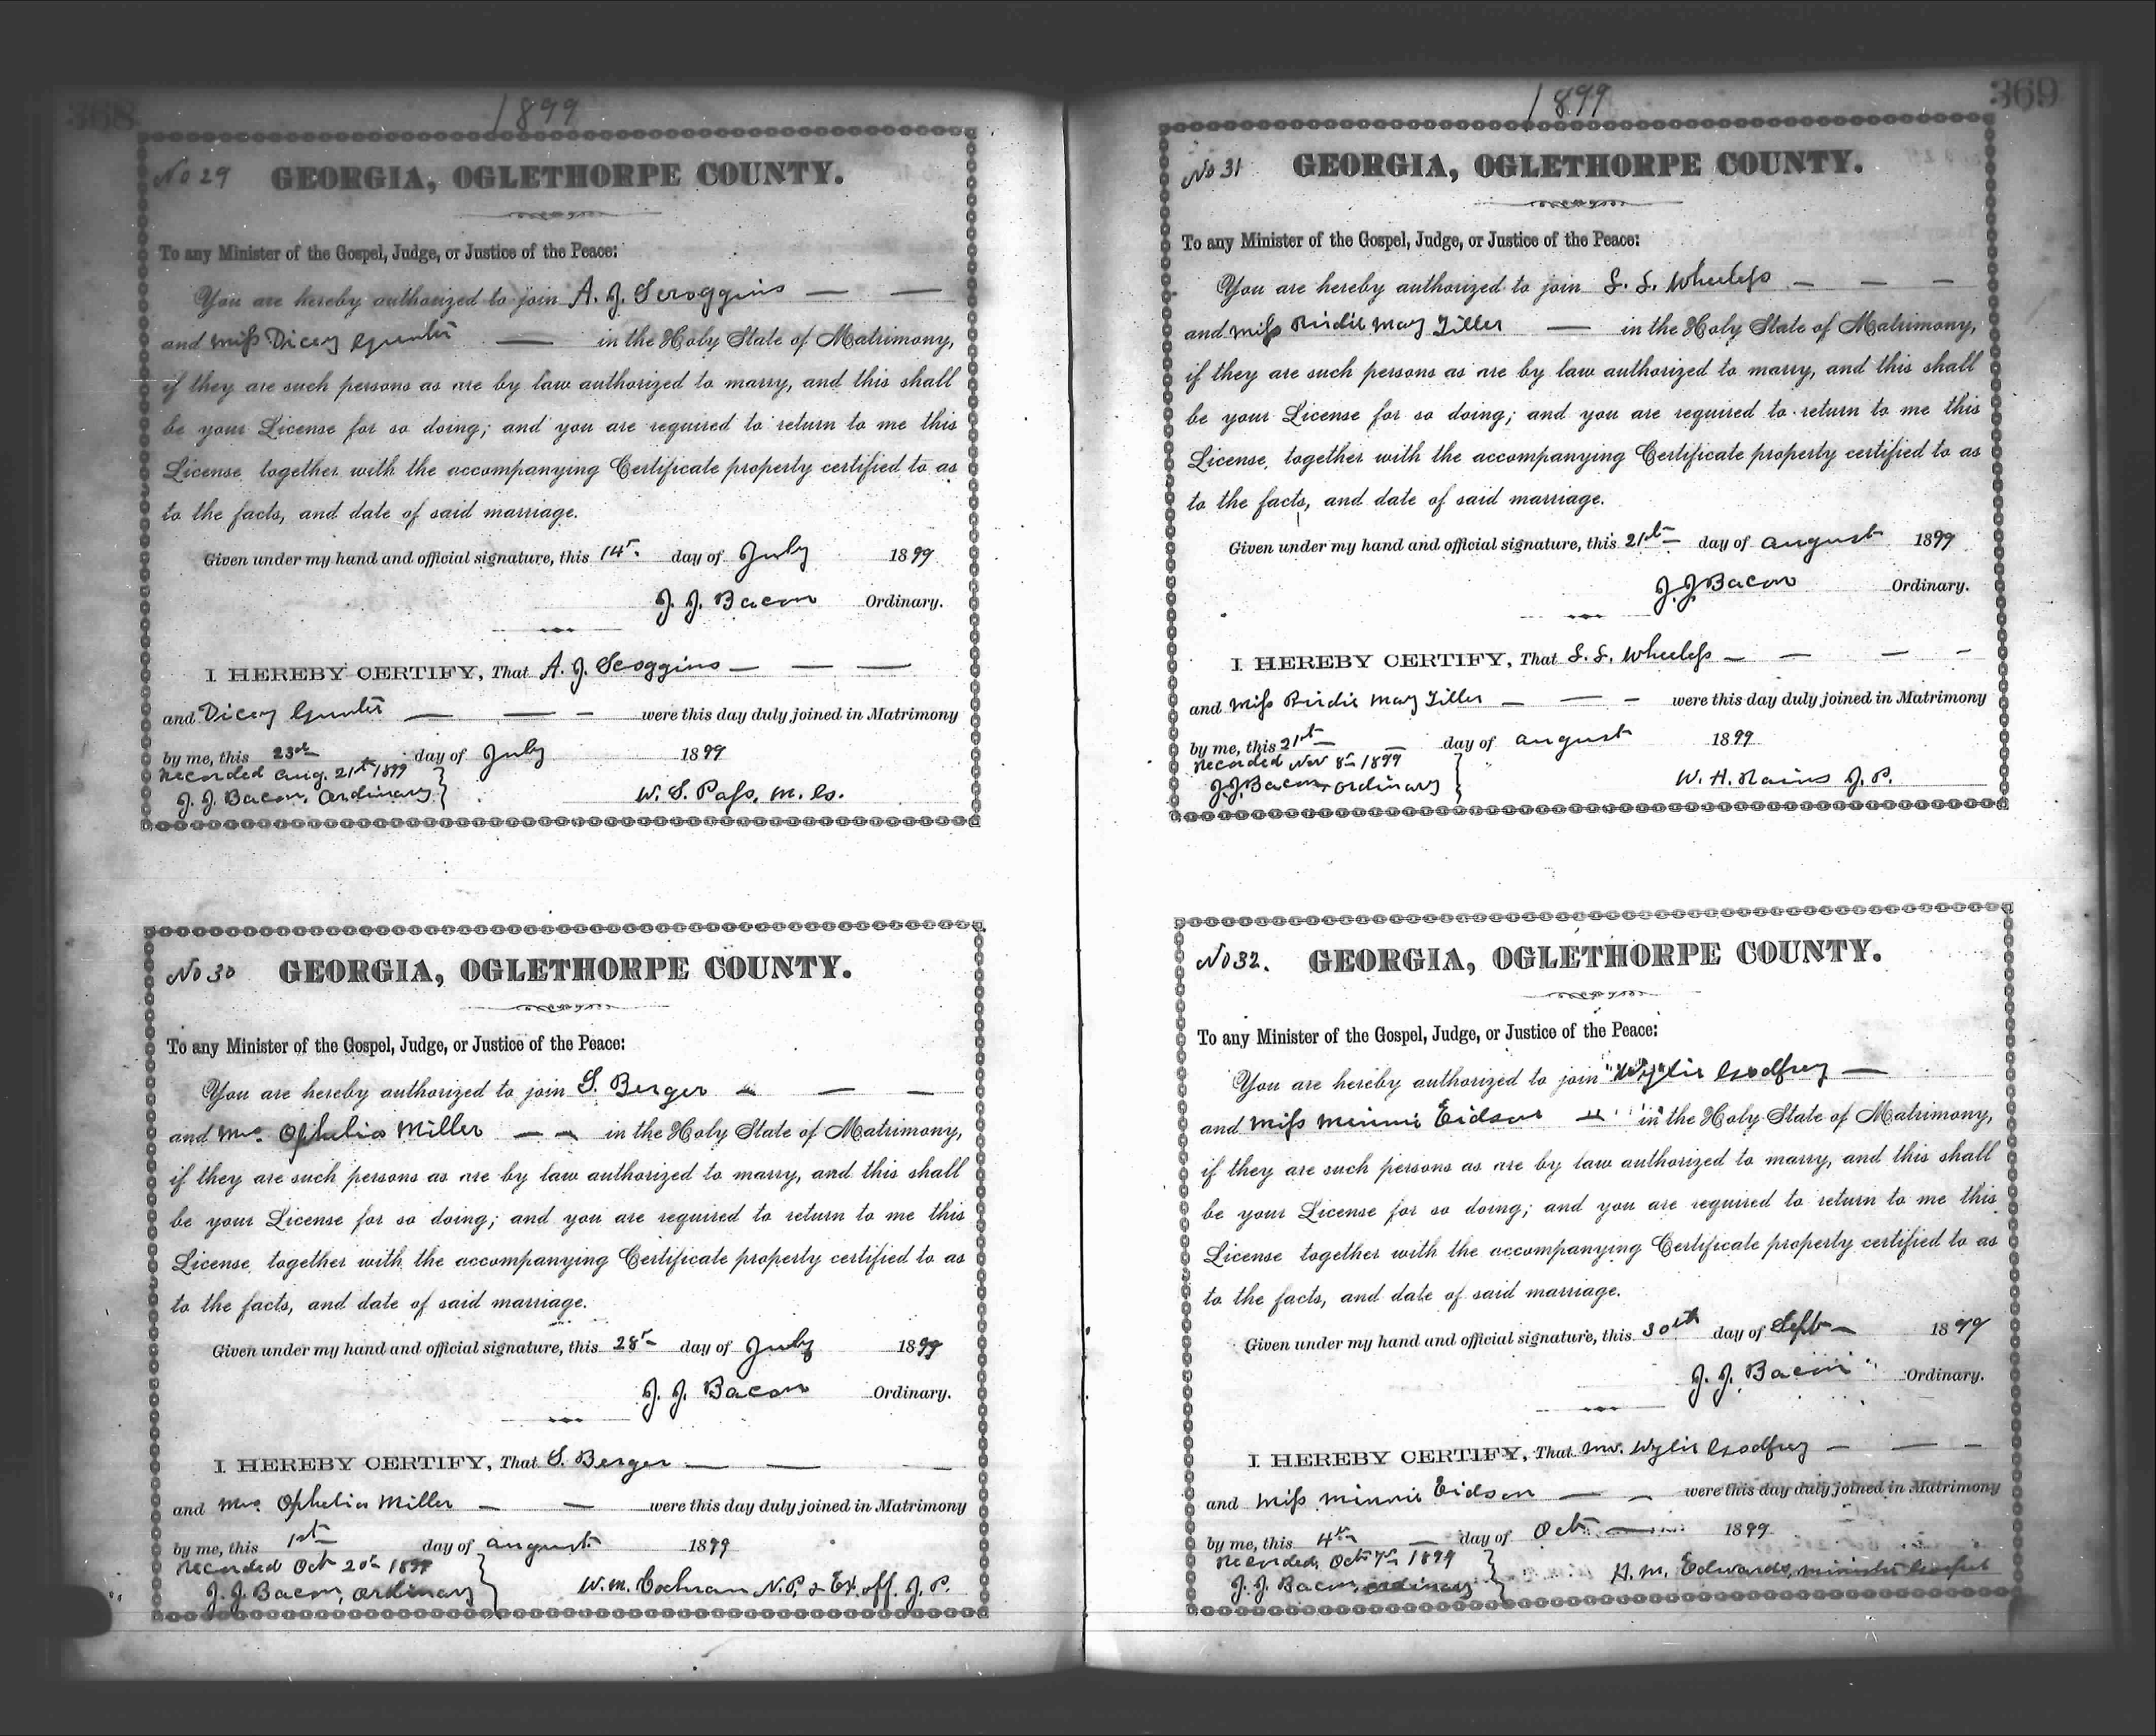 368
1899
No 29 GEORGIA, OGLETHORPE COUNTY.
To any Minister of the Gospel, Judge, or Justice of the Peace:
You are hereby authorized to join A. J. Scroggins
and Miss Dicey Gunter in the Holy State of Matrimony,
if they are such persons as are by law authorized to marry, and this shall
be your License for so doing; and you are required to return to me this
License, together with the accompanying Certificate property certified to as
to the facts, and date of said marriage.
Given under my hand and official signature, this 14th day of July 1899
J. J. Bacon Ordinary.
I HEREBY CERTIFY, That A. J. Scoggins
and Dicey Gunter were this day duly joined in Matrimony
by me, this 23rd day of July 1899
Recorded Aug. 21st 1899
J. J. Bacon, Ordinary
W. S. Pass, M. G.
No 30 GEORGIA, OGLETHORPE COUNTY.
To any Minister of the Gospel, Judge, or Justice of the Peace:
You are hereby authorized to join S. Berger
and Mrs. Ophelia Miller in the Holy State of Matrimony,
if they are such persons as are by law authorized to marry, and this shall
be your License for so doing; and you are required to return to me this
License, together with the accompanying Certificate property certified to as
to the facts, and date of said marriage.
Given under my hand and official signature, this 28th day of July 1899
J. J. Bacon Ordinary.
I HEREBY CERTIFY, That S. Berger
and Mrs. Ophelia Miller were this day duly joined in Matrimony
by me, this 1st day of August 1899
Recorded Oct 20th 1899
J. J. Bacon, Ordinary
W. M. Cochran N. P. & Ex. off. J. P.
369
1899
No 31 GEORGIA, OGLETHORPE COUNTY.
To any Minister of the Gospel, Judge, or Justice of the Peace:
You are hereby authorized to join S. S. Wheeless
and Miss Birdie May Tiller in the Holy State of Matrimony,
if they are such persons as are by law authorized to marry, and this shall
be your License for so doing; and you are required to return to me this
License, together with the accompanying Certificate property certified to as
to the facts, and date of said marriage.
Given under my hand and official signature, this 21st day of August 1899
J. J. Bacon Ordinary.
I HEREBY CERTIFY, That S. S. Wheeless
and Miss Birdie May Tiller were this day duly joined in Matrimony
by me, this 21st day of August 1899
Recorded Nov 8th 1899
J. J. Bacon, Ordinary
W. H. Rains J. P.
No 32. GEORGIA, OGLETHORPE COUNTY.
To any Minister of the Gospel, Judge, or Justice of the Peace:
You are hereby authorized to join Wylie Godfrey
and Miss Minnie Eidson in the Holy State of Matrimony,
if they are such persons as are by law authorized to marry, and this shall
be your License for so doing; and you are required to return to me this
License together with the accompanying Certificate property certified to as
to the facts, and date of said marriage.
Given under my hand and official signature, this 30th day of Sept 1899
J. J. Bacon Ordinary.
I HEREBY CERTIFY, That Mr. Wylie Godfrey
and Miss Minnie Eidson were this day duly joined in Matrimony
by me, this 4th day of Oct 1899
Recorded, Oct 7th 1899
J. J. Bacon, ordinary
H. M. Edwards, minister Gospel